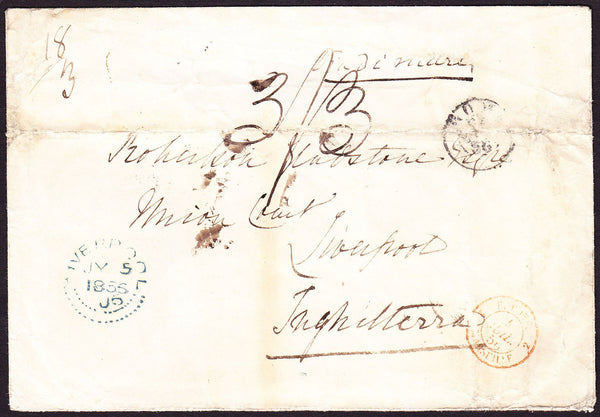 18/3
Via di mare
3/3
ROMA
Robertson Gladstone Esqre
Union Court
Liverpool
Inghilterra
LIVERPOOL
JY 5
1856